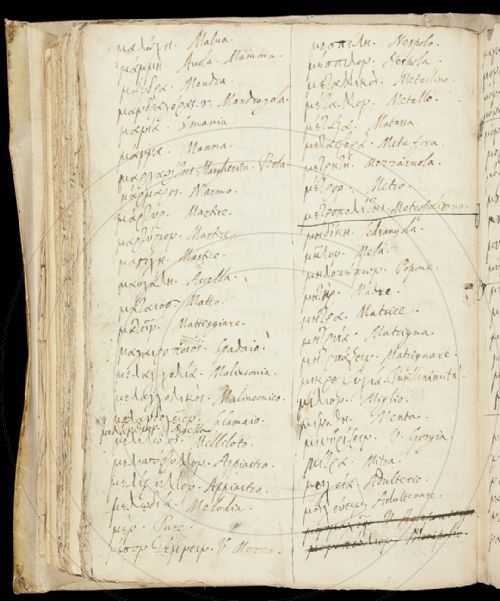 μαλάχη. Malua.
μάμμη. Aua. Mamma.
μάνδρα. Mandra.
μανδραγόρας. Mandragola.
μανία. Smania
μάννα. Manna.
μαργαρίτης. Margherita. Perla.
μάρμαρος. Marmo.
μάρτυρ. Martire.
μαρτύριον. Martire.
μαστίχη. Mastice.
μασχάλη. Ascella.
μάταιος. Matto.
Matteggiare.
μαχαιροποιός. Spadaio.
μελαγχολία. Malinconia.
μελαγχολικός. Malinconico.
calamaio.
Melliloto.
μελισσόφυλλον. Appiastro.
Appiastro.
μελωδία. Melodia.
μέν. Pure.
V. Mezzo.
μέσπιλη. Nespolo.
μέσπιλον. Nespola.
μεταλλικός. Metallino.
μέταλλον. Metallo.
μέταξα. Matassa.
μεταφορά. Metafora.
μετρητής. Mezzaruola.
μέτρον. Metro.
μητροπολίτης. Metropolitano.
μηδική. Cedrangola.
μῆλον. Mela.
μηλοπέπων. Popone.
μήτηρ. Madre.
μήτρα. Matrice.
μητρυιά. Matrigna.
μητρυιάζειν. Matrignare.
μικροψυχία. Pusillanimità.
μίλιον. Miglio.
μίνθη. Menta.
V. Gorgia.
μίτρα. Mitra.
μοιχεία. Adulterio.
μοιχεύειν. Adulterare.